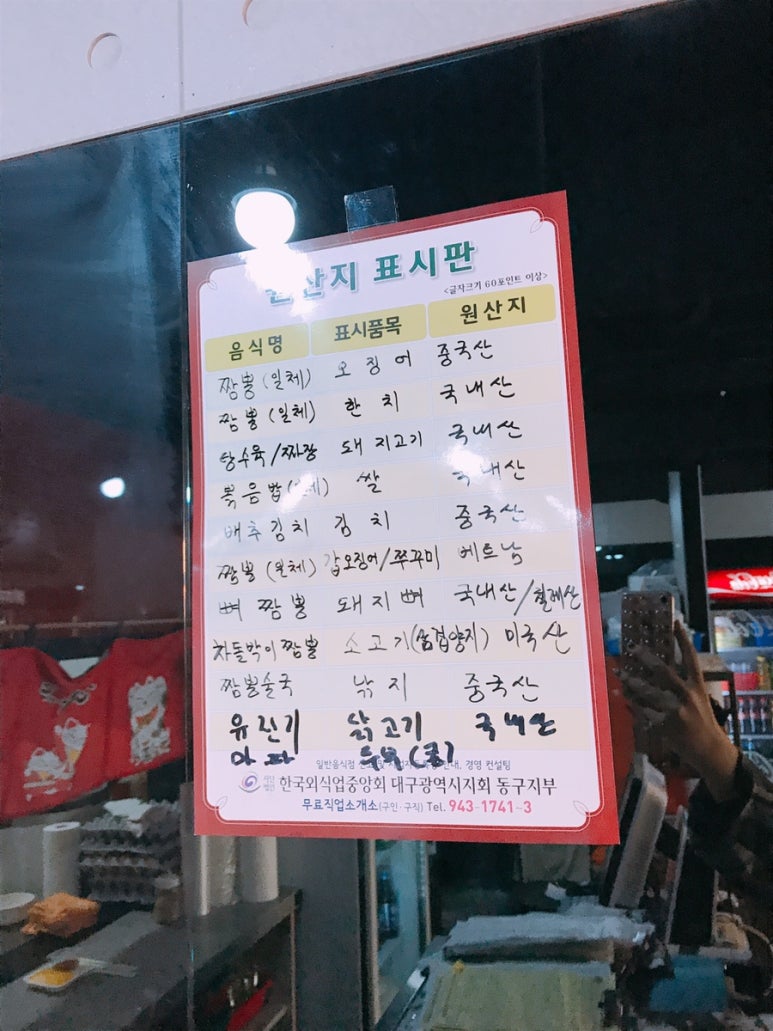 원산지 표시판
<글자크기 60포인트 이상>
음식명 표시품목 원산지
짬뽕 (일체) 오징어 중국산
짬뽕 (일체) 한치 국내산
탕수육/짜장 돼지고기 국내산
볶음밥(일체) 쌀 국내산
배추김치 김치 중국산
짬뽕 (일체) 갑오징어/쭈꾸미 베트남
뼈짬뽕 돼지뼈 국내산/칠레산
차돌박이짬뽕 소고기(삼겹양지) 미국산
짬뽕술국 낙지 중국산
유린기 닭고기 국내산
마파 두부(콩)
일반음식점 안내, 경영 컨설팅
한국외식업중앙회 대구광역시지회 동구지부
무료직업소개소(구인·구직) Tel. 943-1741~3